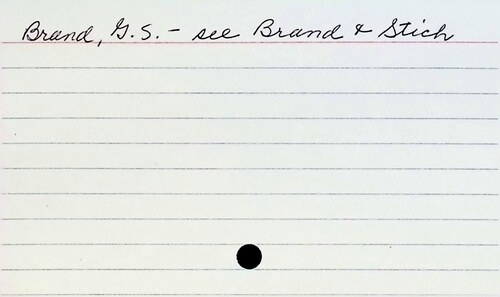 Brand, G.S. - see Brand & Stich